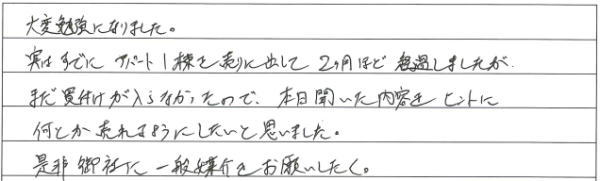 大変勉強になりました。
実はすでに アパート1棟を売りに出して 2ヶ月ほど 経過しましたが、
まだ買付けが入らなかったので、本日聞いた内容を ヒントに
何とか売れるようにしたいと思いました。
是非 御社に 一般媒介を お願いしたく。